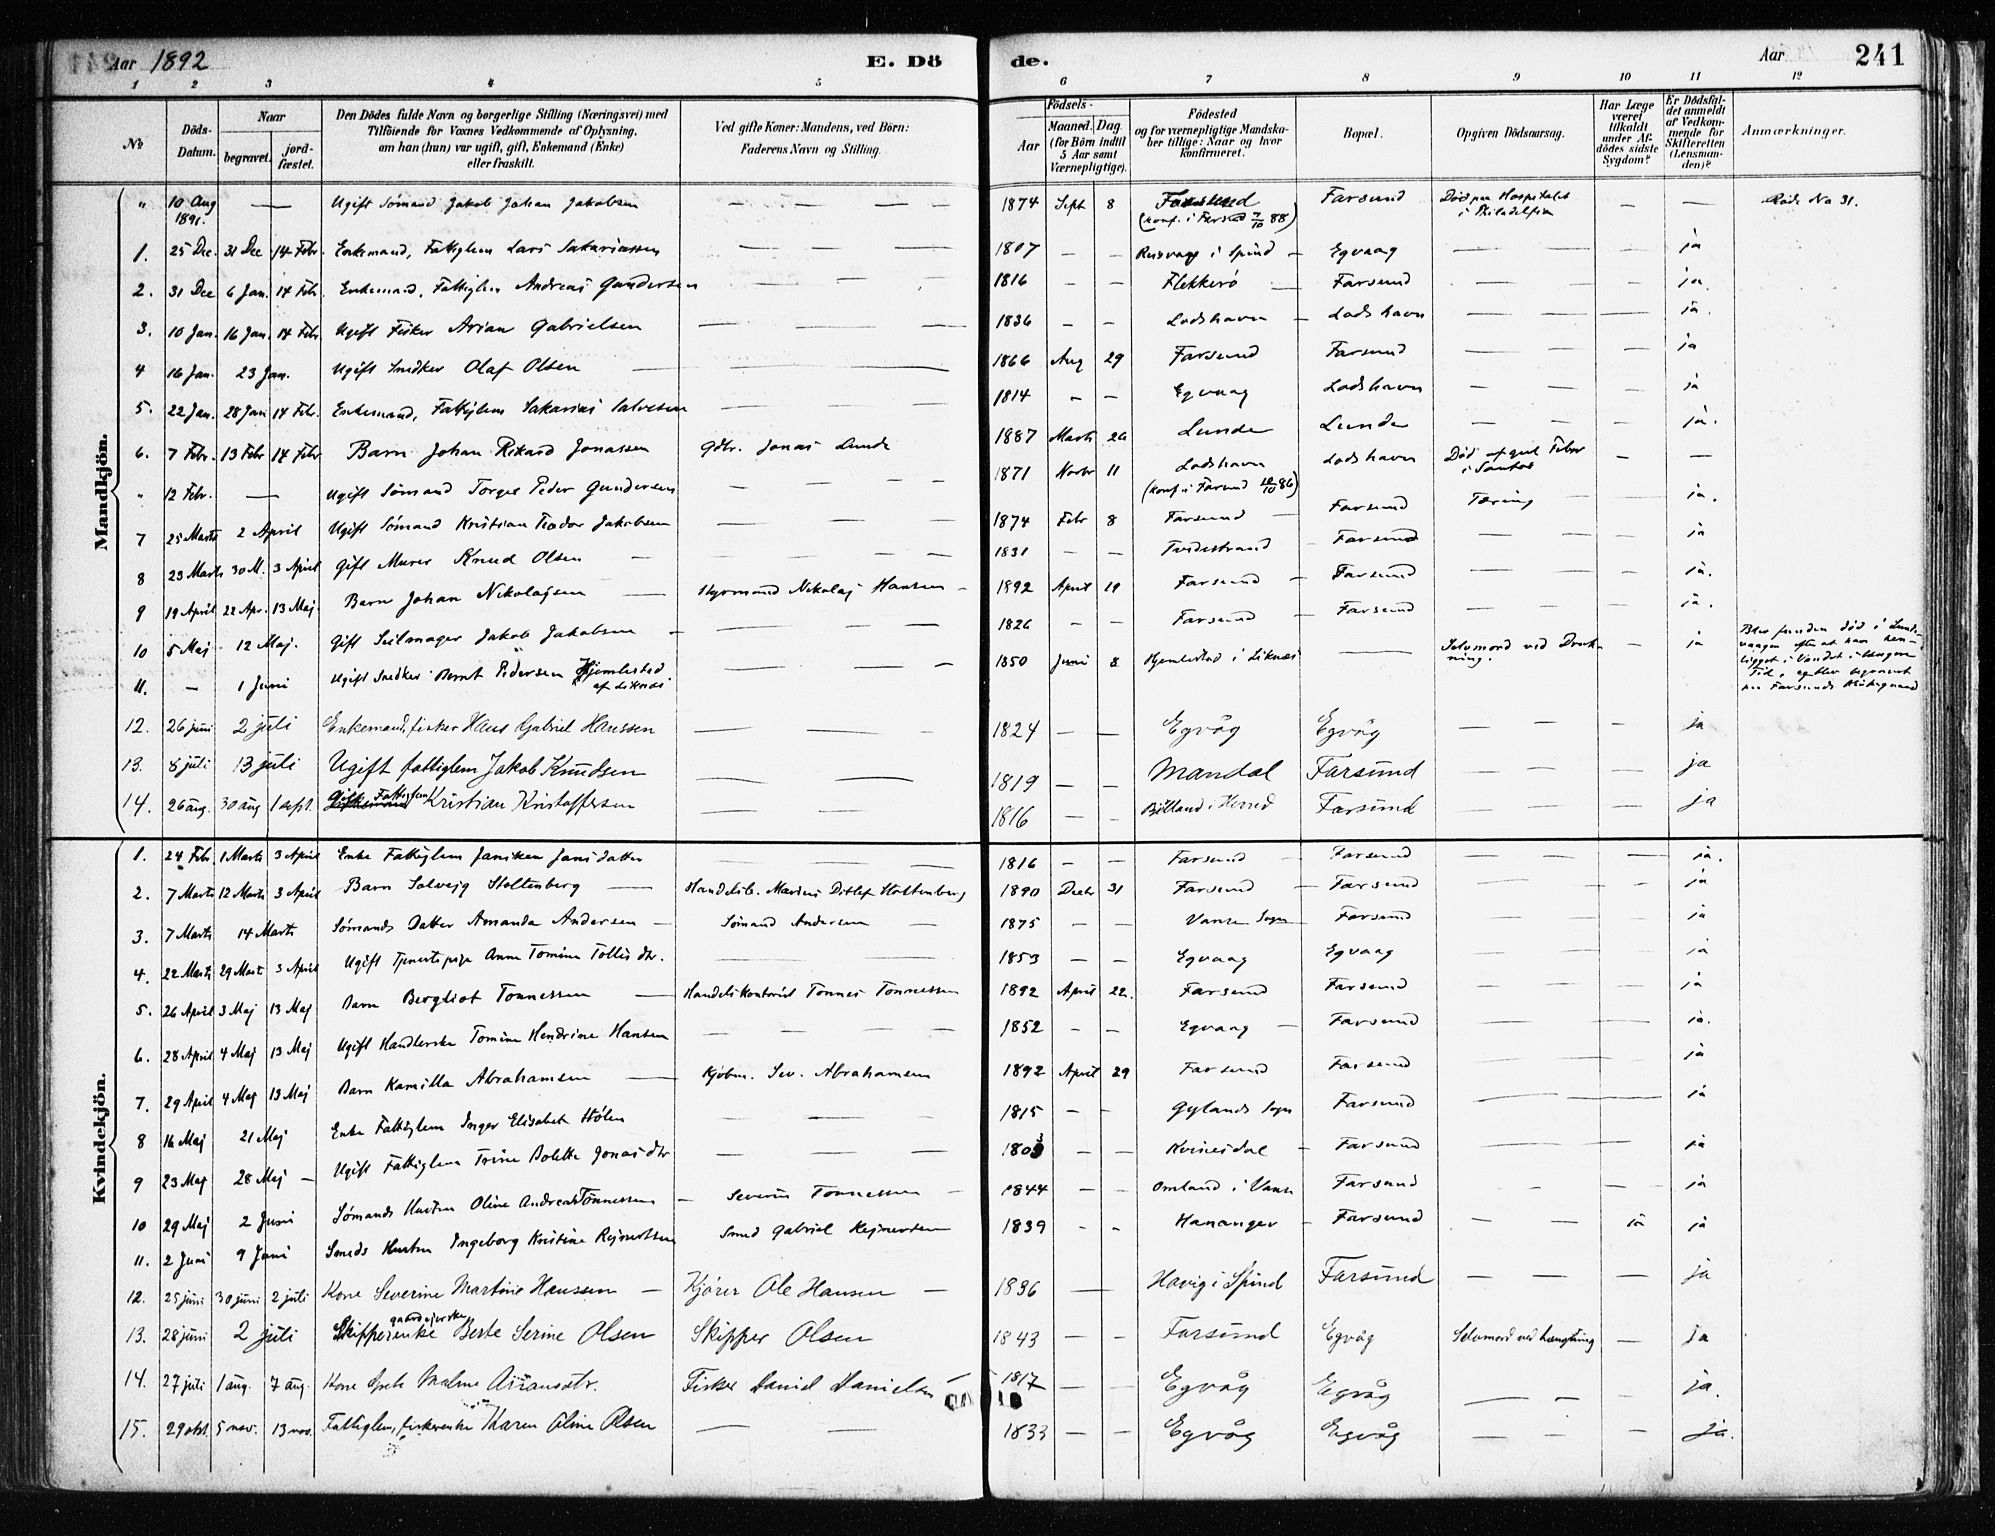 Aar 1892 E. Dö de. Aar 241
1 2 3 4 5 6 7 8 9 10 11 12
No Döds-Datum. Naar begravet. jord-fæstet. Den Dödes fulde Navn og borgerlige Stilling (Næringsvei) med Tilföiende for Voxnes Vedkommende af Oplysning, om han (hun) var ugift, gift, Enkemand (Enke) eller fraskilt. Ved gifte Koner: Mandens, ved Börn: Faderens Navn og Stilling. Födsels- Aar Maaned. Dag. (for Börn indtil 5 Aar samt Værnepligtige). Födested og for værnepligtige Mandskaber tillige: Naar og hvor konfirmeret. Bopæl. Opgiven Dödsaarsag. Har Læge været tilkaldt under Afdödes sidste Sygdom? Er Dödsfaldet anmeldt af Vedkommende for Skifteretten (Lensmanden)? Anmærkninger.
Mandkjön.
" 10 Aug 1891. — Ugift Sømand Jakob Johan Jakobsen — — — 1874 Sept 8 Farsund (konf. i Farsund 7/10 88) Farsund Død paa Hospitalet i Philadelfia — — No 31.
1. 25 Dec. 31 Dec 14 Febr. Enkemand, Fattiglem Lars Sakariassen — — — 1807 — — i Spind — Egvaag — — — ja
2. 31 Dec 6 Jan. 14 Febr. Enkemand, Fattiglem Andreas Gundersen — — — 1816 — — Flekkerø — Farsund — — — ja
3. 10 Jan. 16 Jan. 14 Febr. Ugift Fisker Arian Gabrielsen — — — 1836 — — Lodshavn — Lodshavn — — — ja.
4 16 Jan. 23 Jan. Ugift Snedker Olaf Olsen — — — 1866 Aug 29 Farsund Farsund — — — ja
5. 22 Jan. 28 Jan 14 Febr. Enkemand, Fattiglem Sakarias Salvesen — — — 1814 — — Egvaag Lodshavn — — — ja
6. 7 Febr. 13 Febr 14 Febr Barn Johan Rikard Jonassen Gdbr. Jonas Lunde 1887 Marts 26 Lunde Lunde — — — ja.
" 12 Febr. — Ugift Sømand Torges Peder Gundersen — — — 1871 Novbr 11 Lodshavn (konf. i Farsund 10/10 86) Lodshavn Død af gul Feber i Santos — —
7 25 Marts 2 April Ugift Sømand Kristian Teodor Jakobsen — — — 1874 Febr 8 Farsund — Farsund Tæring — — ja.
8 23 Marts 30 M. 3 April Gift Murer Knud Olsen — — — 1831 — — Tvedestrand — Farsund — — — ja
9 19 April 22 Apr. 13 Maj. Barn Johan Nikolajsen — Styrmand Nikolaj Hansen — 1892 April 19 Farsund — Farsund — — — ja.
10 5 Maj 12 Maj. Gift Seilmager Jakob Jakobsen — — — 1826 Farsund — Farsund — — — ja.
11. — 1 Juni Ugift Snedker Bernt Pedersen Hjemlestad af Liknæs — — — 1850 Juni 8 Hjemlestad i Liknæs — Selvmord ved Drukning. — ja Blev funden død i Lundevaagen efter at have henligget i Vandet i længere Tid, og blev begravet paa Farsunds Kirkegaard
12. 26 juni 2 juli Enkemand, fisker Hans Gabriel Hanssen — — 1824 — — Egvåg Egvåg — — — ja
13. 8 juli 13 juli Ugift fattiglem Jakob Knudsen — — 1819 — — Mandal Farsund — — — ja
14. 26 aug. 30 aug 1 sept. Gift Fattiglem Kristian Kristoffersen — — 1816 — — Farsund — — — ja
Kvindekjön.
1. 24 Febr. 1 Marts 3 April Enke Fattiglem Janiken Jansdatter — — — 1816 — — Farsund — Farsund — — — ja.
2. 7 Marts 12 Marts 3 April Barn Solvejg Stoltenberg — Handelsb. Marius Ditlef Stoltenberg 1890 Decbr 31 Farsund — Farsund — — — ja
3. 7 Marts 14 Marts Sømands Datter Amanda Andersen — Sømand Andersen — 1875 — — Vanse Sogn — Farsund — — — ja
4. 22 Marts 29 Marts 3 April Ugift Tjenestepige Anne Tomine Tollisdtr. — — — 1853 — — Egvaag Egvaag — — — ja
5. 26 April 3 Maj 13 Maj Barn Bergliot Tønnessen — Handelskontorist Tønnes Tønnessen 1892 April 22. Farsund Farsund — — — ja
6. 28 April 4 Maj 13 Maj Ugift Handlerske Tomine Hendrine Hansen — — — — 1852 — — Egvaag — Farsund — — — ja.
7. 29 April 4 Maj 13 Maj Barn Kamilla Abrahamsen — Kjøbm. Sev. Abrahamsen 1892 April 29 Farsund Farsund — — — ja
8 16 Maj 21 Maj Enke Fattiglem Inger Elisabet Hølen — — — 1815 — — Gylands Sogn Farsund — — — ja
9 23 Maj 28 Maj — Ugift Fattiglem Trine Bolette Jonasdtr — — — 1803 — — Kvinesdal — Farsund — — — ja
10 29 Maj 2 Juni Sømands Hustru Oline Andrea Tønnessen — Severin Tønnessen — 1844 — — Omland i Vanse Farsund — — — ja
11. 2 Juni 9 Juni Smeds Hustru Ingeborg Kristine Rejnertsen Smed Gabriel Rejnertsen 1839 — — Hananger — Farsund — — ja ja
12. 25 juni 30 juni 2 juli Kone Severine Martine Hanssen — Kjører Ole Hansen — 1836 — — Havig i Spind Farsund — — — ja
13. 28 juni 2 juli Skipperenke Berte Serine Olsen Skipper Olsen 1843 — — Farsund Egvåg Selvmord ved hængning — ja
14. 27 juli 1 aug. 7 aug. Kone Grete Malene Fisker Daniel Danielsen 1817 — — Egvåg Egvåg — — — ja.
15. 29 okt. 5 nov. 13 nov. Fattiglem, fiskerenke Karen Oline Olsen — — 1833 — — Egvåg Egvåg — — — ja.